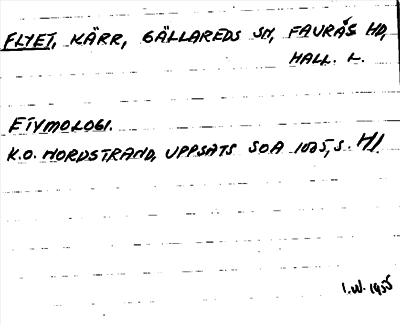 FLYET, KÄRR, GÄLLAREDS SN, FAURÅS HD,
HALL. L.
ETYMOLOGI.
K.O. NORDSTRAND, UPPSATS SOA 1025, S.
I.W. 1955